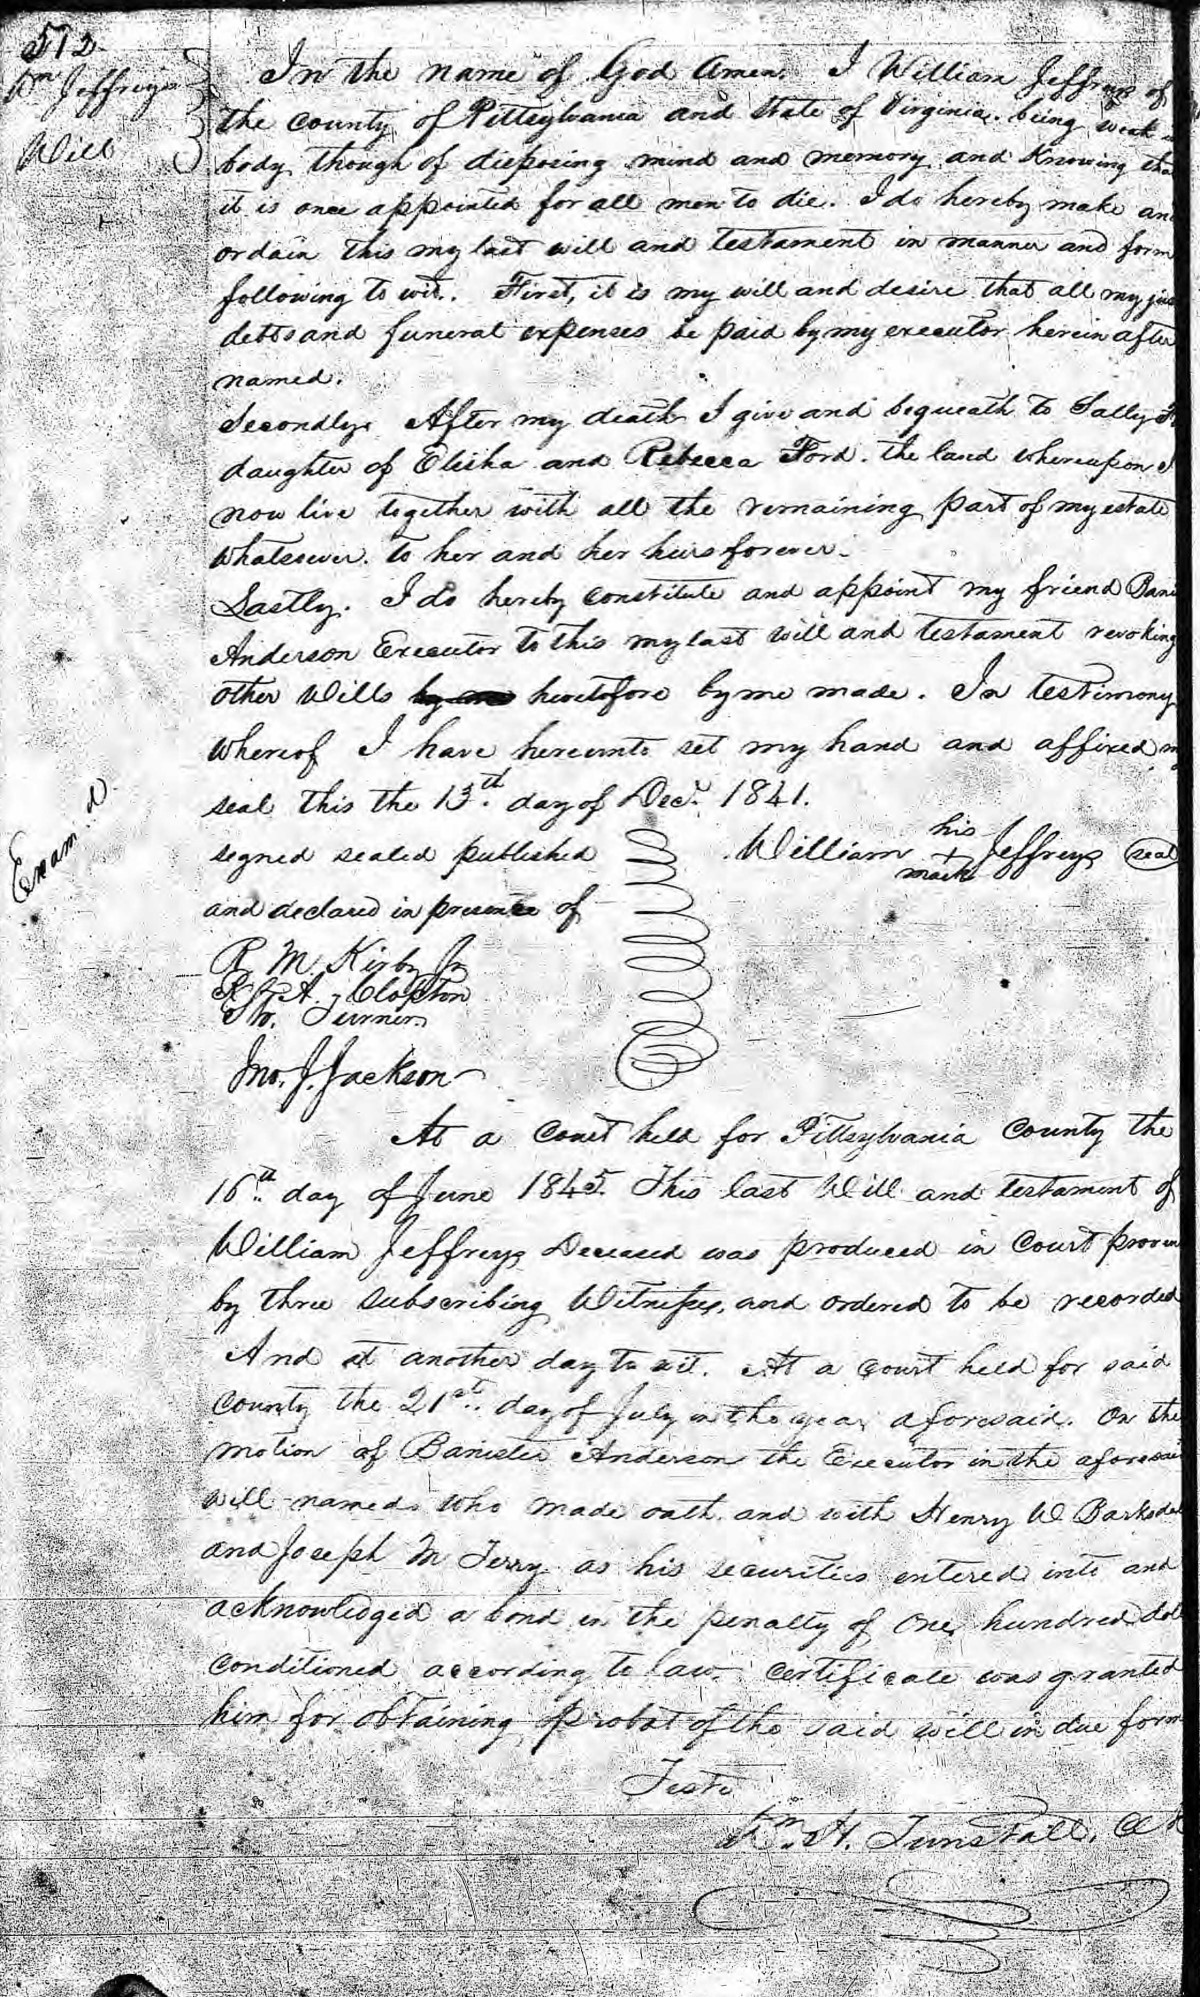 572
Wm Jeffreys
Will
In the name of God Amen. I William Jeffreys of
the county of Pittsylvania and State of Virginia. being weak
body though of disposing mind and memory and Knowing tha
it is once appointed for all men to die. I do hereby make an
ordain this my last will and testament in manner and form
following to wit. First, it is my will and desire that all my jus
debts and funeral expenses be paid by my executor herein after
named.
Secondly. After my death I give and bequeath to Sally
daughter of Elisha and Rebecca Ford. the land whereupon I
now live together with all the remaining part of my estate
whatsoever. to her and her heirs forever.
Lastly. I do hereby constitute and appoint my friend Bani
Anderson Executor to this my last will and testament revoking
other Wills heretofore by me made. In testimony
whereof I have hereunto set my hand and affixed m
seal this the 13th day of Decr. 1841.
signed sealed published
and declared in presence of
William his + mark Jeffreys seal
R M. Kirby Jr
A. Clopton
W. Turner
Jno. J. Jackson
Exam.d
At a Court held for Pittsylvania County the
16th day of June 1845. This last Will and testament of
William Jeffreys Deceased was produced in Court proven
by three subscribing Witnesses, and ordered to be recorded
And at another day to wit. At a court held for said
County the 21st. day of July in the year aforesaid. On the
motion of Banister Anderson the Executor in the aforesaid
will named. who made oath. and with Henry W Barksdal
and Joseph M Terry as his securities entered into and
acknowledged a bond in the penalty of One hundred doll
conditioned according to law. certificate was granted
him for obtaining probat of the said will in due form
Teste
Wm. H. Tunstall, Clk